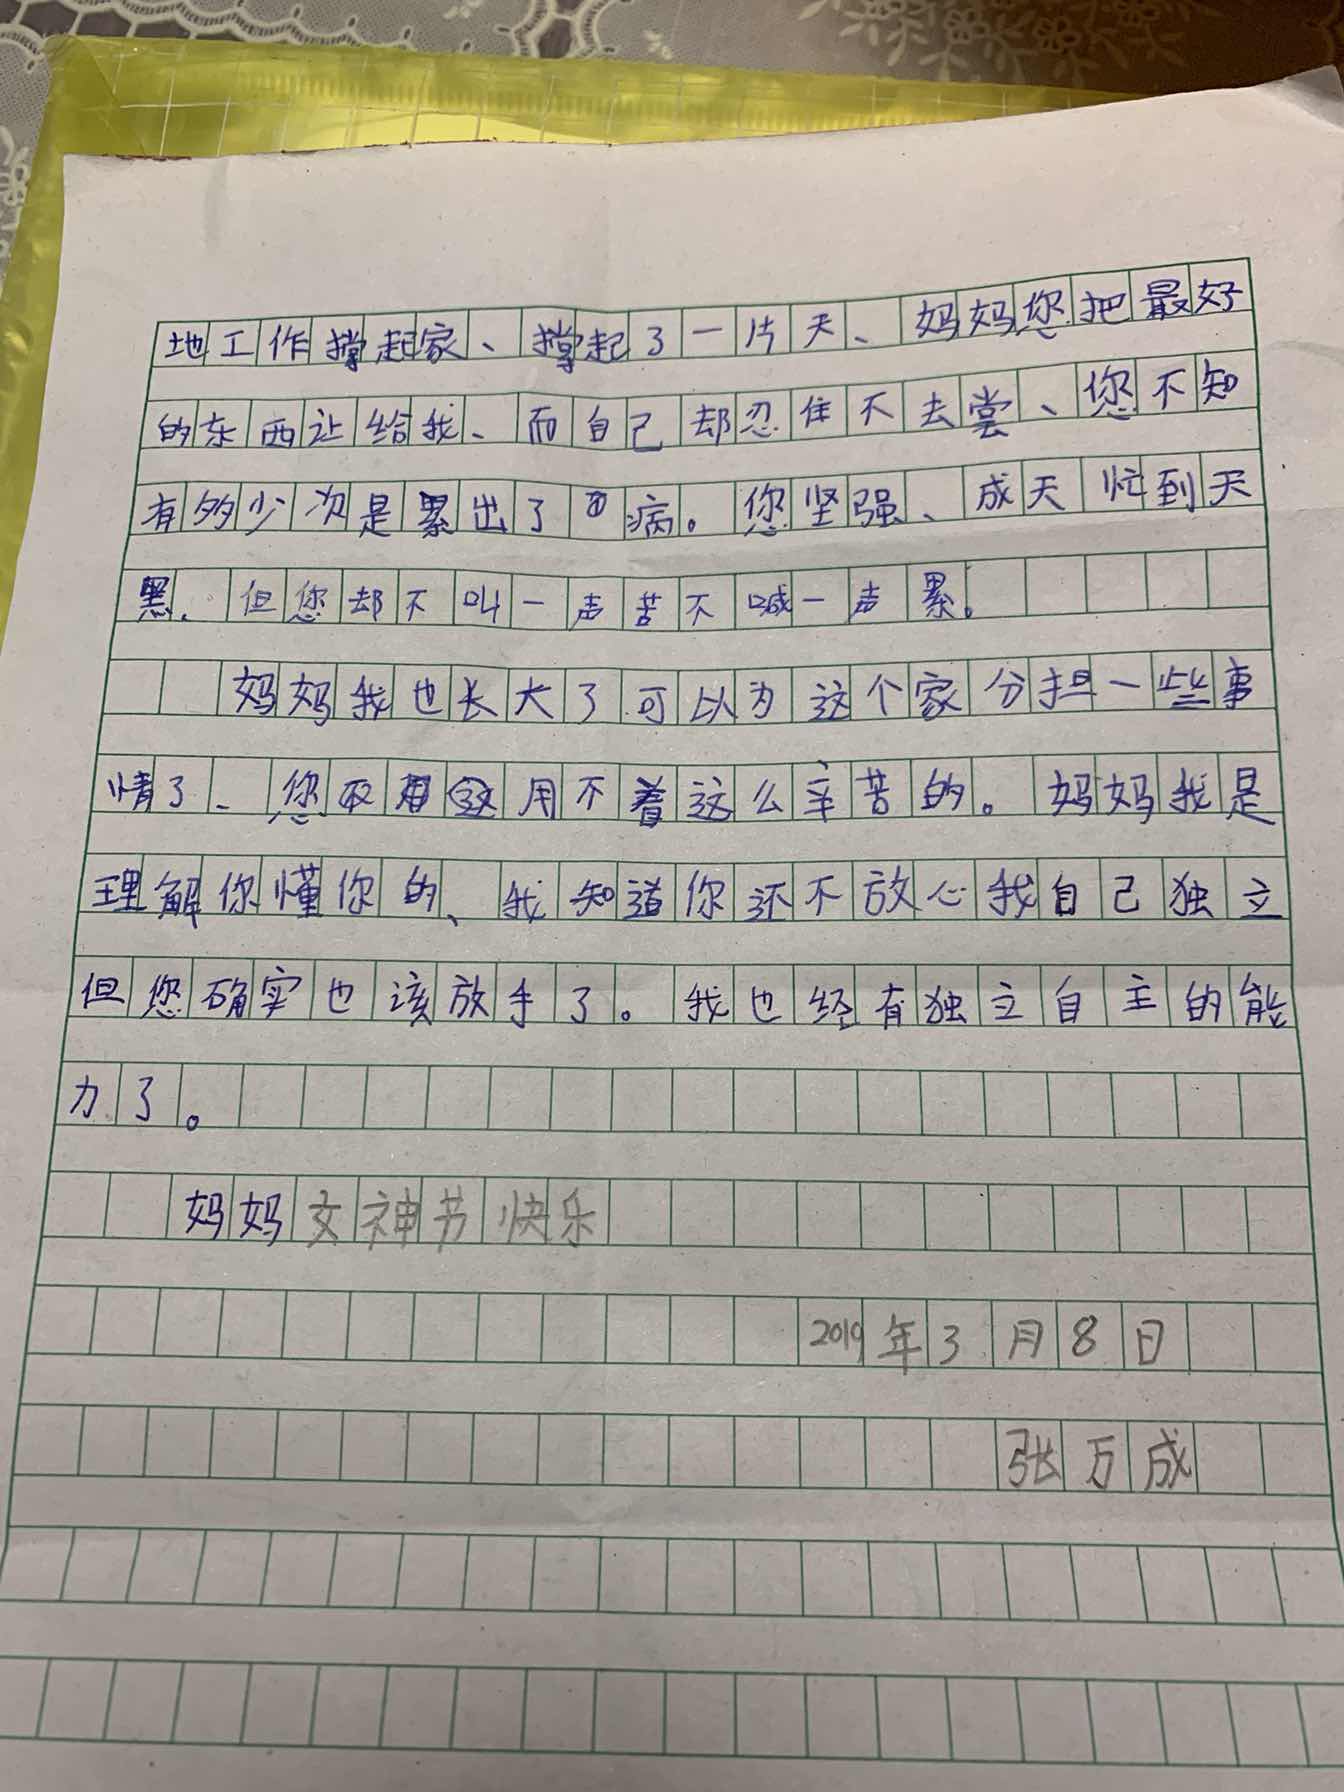 地工作撑起家、撑起了一片天、妈妈您把最好
的东西让给我、而自己却忍住不去尝、您不知
有多少次是累出了病。您坚强、成天忙到天
黑、但您却不叫一声苦不喊一声累。
妈妈我也长大了可以为这个家分担一些事
情了、您用不着这么辛苦的。妈妈我是
理解你懂你的、我知道你还不放心我自己独立
但您确实也该放手了。我也经有独立自主的能
力了。
妈妈女神节快乐
2019年3月8日
张万成